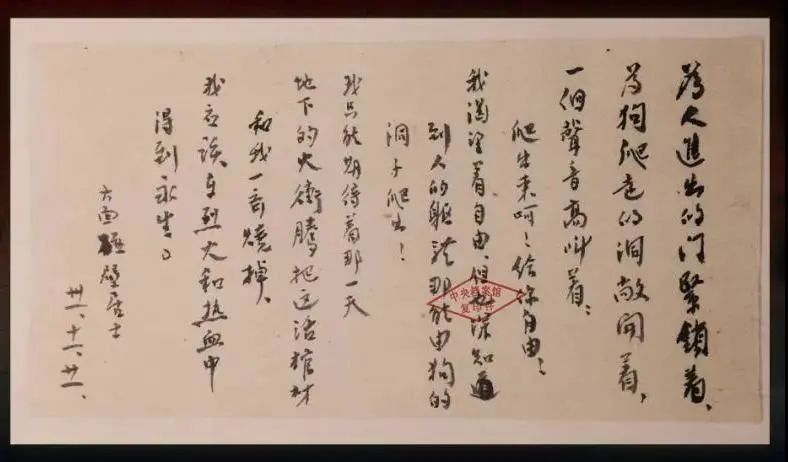 為人進出的门緊鎖着、
為狗爬走的洞敞開着、
一個聲音高叫着、
爬出來呵！給你自由！
我渴望着自由、但也深知道
到人的軀體那能由狗的
洞子爬出！
我只能期待着那一天
地下的火衝腾把这活棺材
和我一齐燒掉、
我应该在烈火和热血中
得到永生。
六面碰壁居士
卅一、十一、廿一、
中央档案馆
复印件